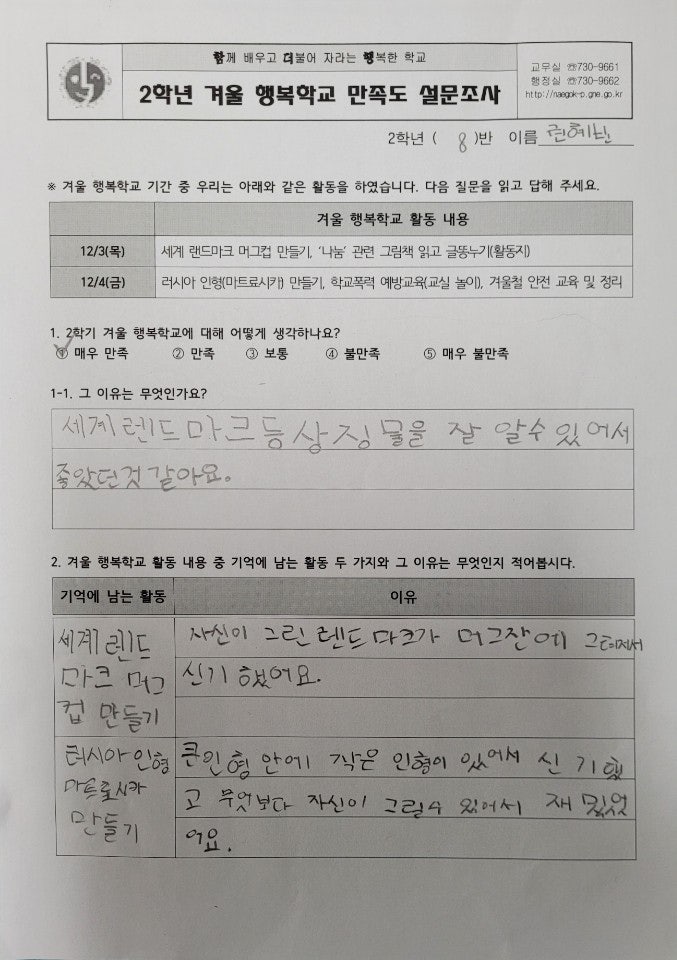 함께 배우고 더불어 자라는 행복한 학교
2학년 겨울 행복학교 만족도 설문조사
교무실 ☎730-9661
행정실 ☎730-9662
http://naegok-p.gne.go.kr
2학년 ( 8 )반 이름
※ 겨울 행복학교 기간 중 우리는 아래와 같은 활동을 하였습니다. 다음 질문을 읽고 답해 주세요.
겨울 행복학교 활동 내용
12/3(목) 세계 랜드마크 머그컵 만들기, ‘나눔’ 관련 그림책 읽고 글똥누기(활동지)
12/4(금) 러시아 인형(마트료시카) 만들기, 학교폭력 예방교육(교실 놀이), 겨울철 안전 교육 및 정리
1. 2학기 겨울 행복학교에 대해 어떻게 생각하나요?
① 매우 만족 ② 만족 ③ 보통 ④ 불만족 ⑤ 매우 불만족
1-1. 그 이유는 무엇인가요?
세계렌드마크등상징물을 잘 알수있어서
좋았던것같아요.
2. 겨울 행복학교 활동 내용 중 기억에 남는 활동 두 가지와 그 이유는 무엇인지 적어봅시다.
기억에 남는 활동 이유
세계렌드
마크 머그
컵 만들기
자신이 그린렌드마크가 머그잔에 그려져서
신기했어요.
러시아인형
마트료시카
만들기
큰인형안에 작은 인형이 있어서 신기했
고 무엇보다 자신이 그릴수 있어서 재밌었
어요.